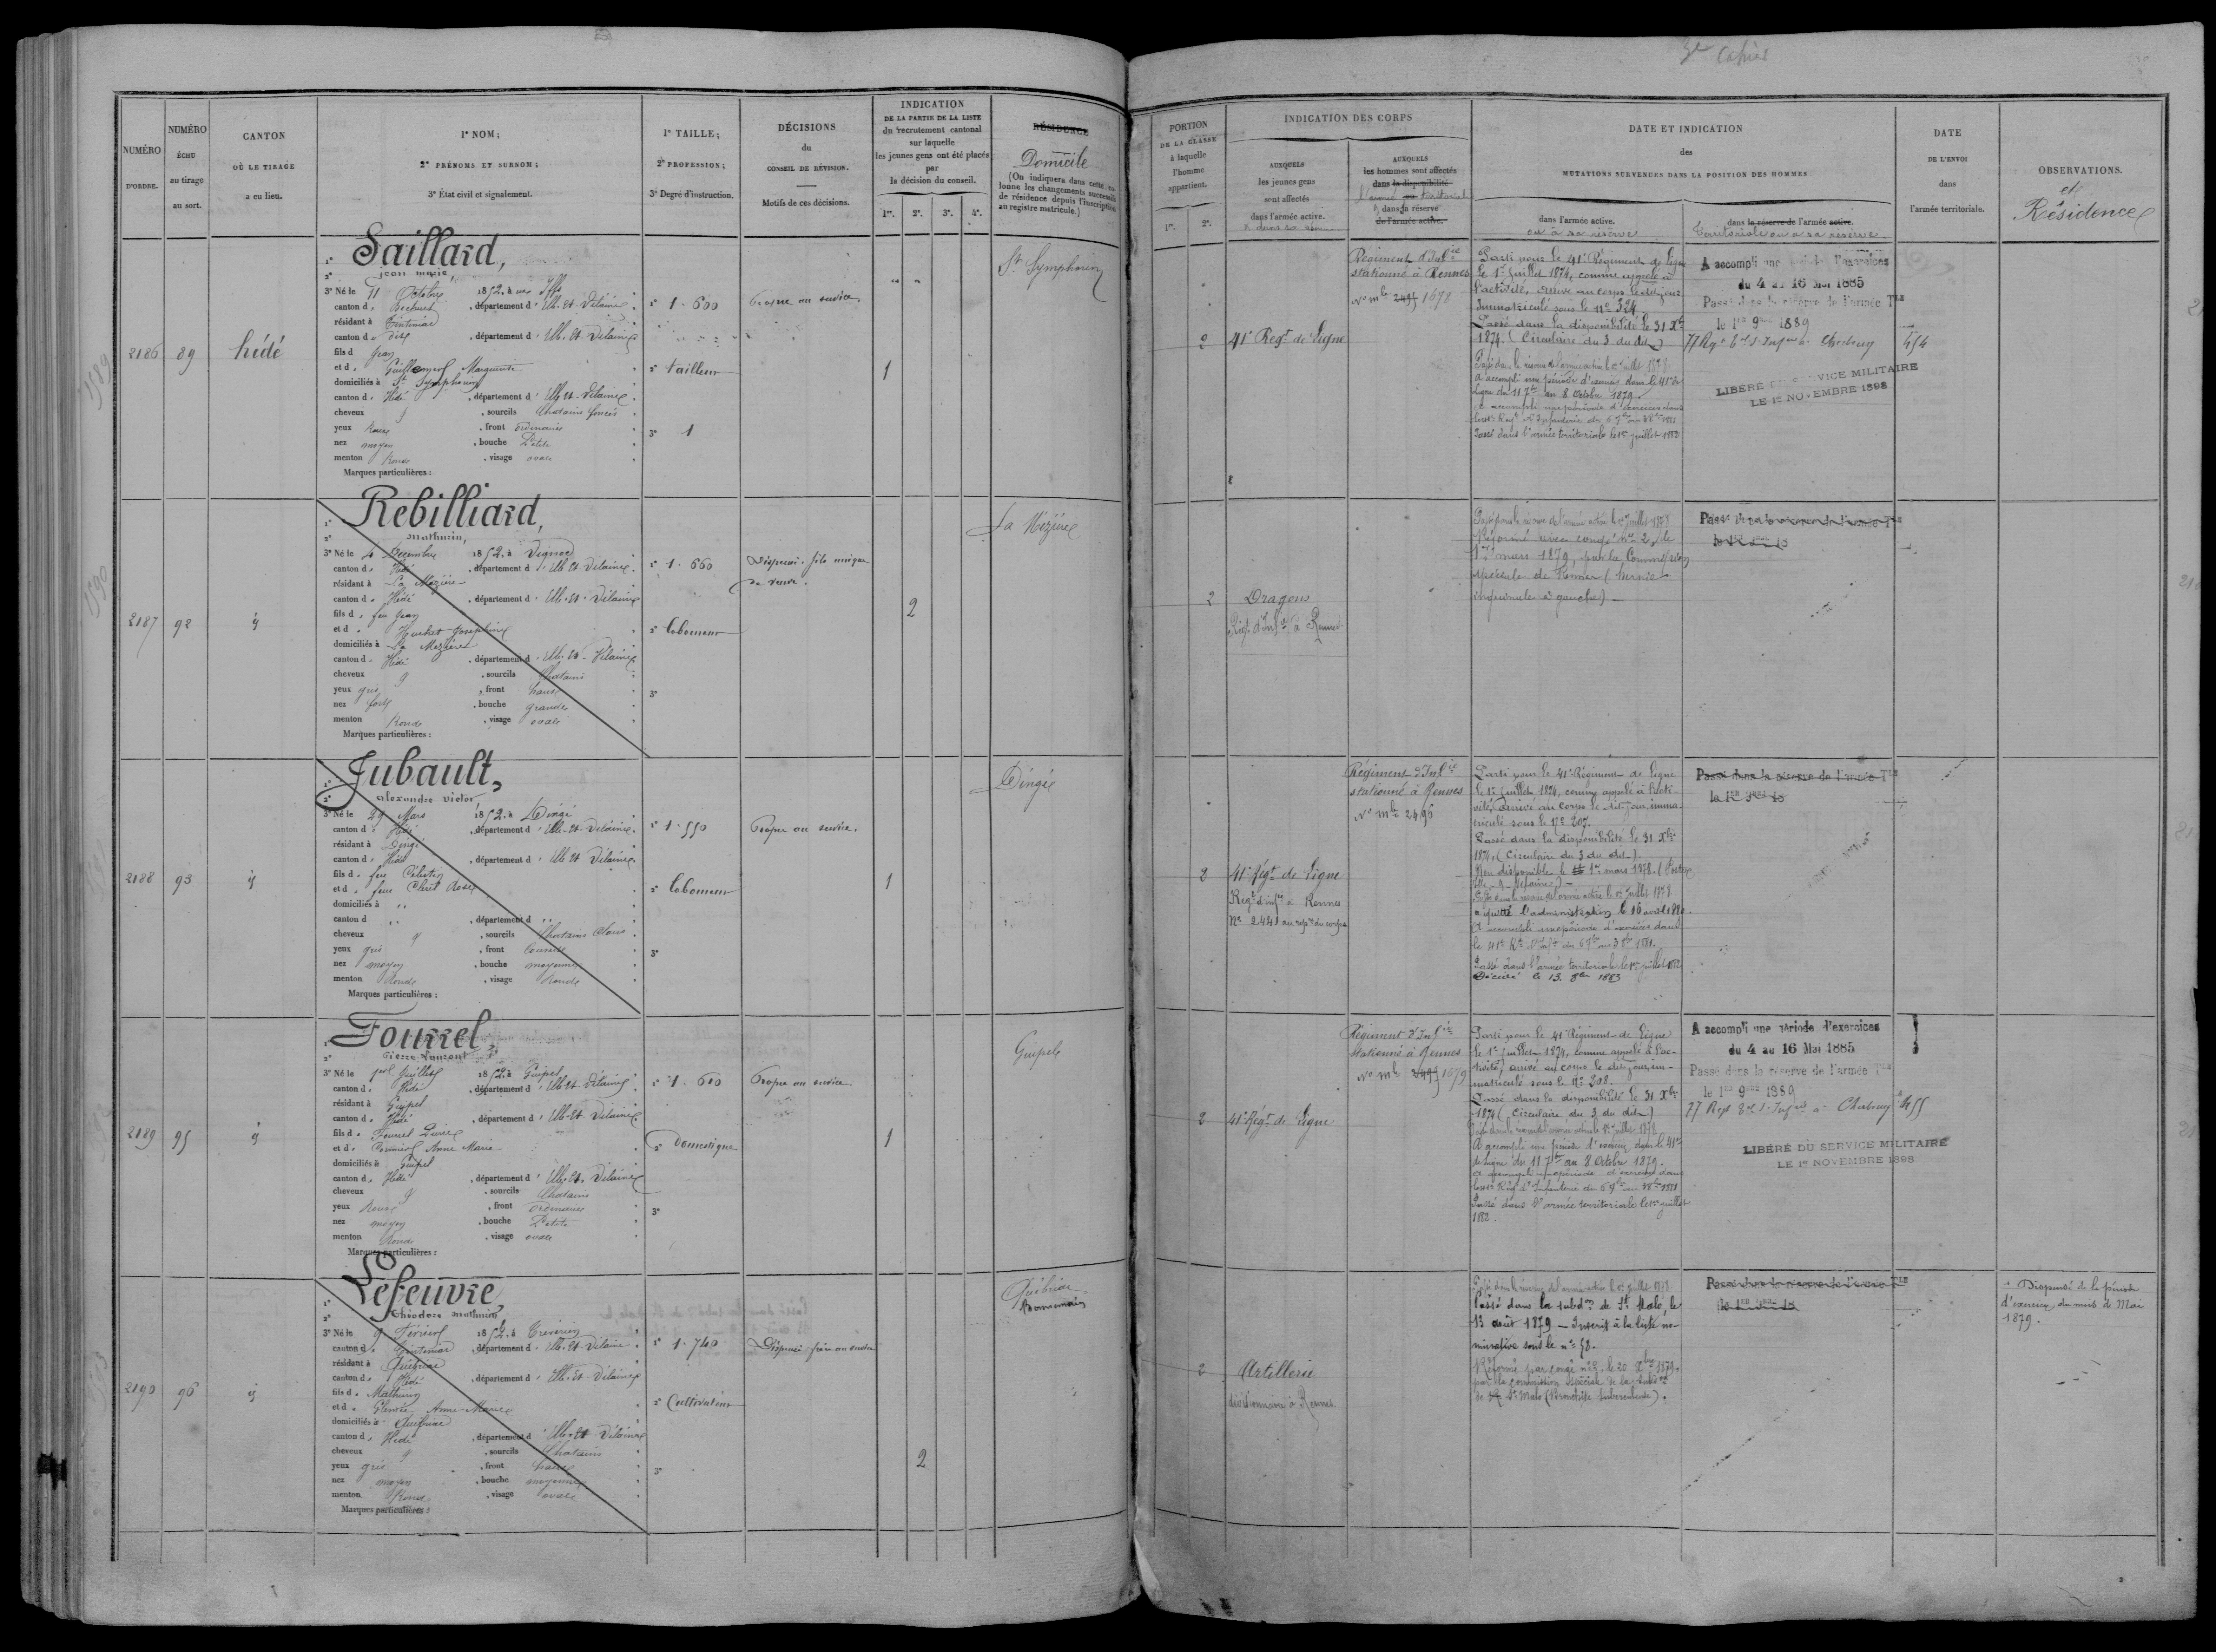 3e Cahier
NUMÉRO
D'ORDRE.
NUMÉRO
ÉCHU
au tirage
au sort.
CANTON
OÙ LE TIRAGE
a eu lieu.
1° NOM;
2° PRÉNOMS ET SURNOM;
3° État civil et signalement.
1° TAILLE;
2° PROFESSION;
3° Degré d'instruction.
DÉCISIONS
du
CONSEIL DE RÉVISION.
Motifs de ces décisions.
INDICATION
DE LA PARTIE DE LA LISTE
du recrutement cantonal
sur laquelle
les jeunes gens ont été placés
par
la décision du conseil.
1re. 2e. 3e. 4e.
RÉSIDENCE
Domicile
(On indiquera dans cette co-
lonne les changements successifs
de résidence depuis l'inscription
au registre matricule.)
PORTION
DE LA CLASSE
à laquelle
l'homme
appartient.
1re. 2e.
INDICATION DES CORPS
AUXQUELS
les jeunes gens
sont affectés
dans l'armée active.
AUXQUELS
les hommes sont affectés
dans la disponibilité
dans la réserve
de l'armée active.
DATE ET INDICATION
des
MUTATIONS SURVENUES DANS LA POSITION DES HOMMES
dans l'armée active.
ou à sa réserve
dans la réserve de l'armée active.
Territoriale ou à sa réserve
DATE
DE L'ENVOI
dans
l'armée territoriale.
OBSERVATIONS.
et
Résidence
2186 89 hédé
1° Saillard,
2° jean marie
3° Né le 11 Octobre 1852. à Iffs
canton d. Bécherel, département d'Ille-et-Vilaine
résidant à Tinténiac
canton d. dite, département d'Ille-et-Vilaine
fils d Jean
et d. Marguerite
domiciliés à St Symphorien
canton d. Hédé, département d'Ille-et-Vilaine
cheveux, sourcils Chatains foncés
yeux Roux, front ordinaire
nez moyen, bouche Petite
menton Rond, visage ovale
Marques particulières:
1° 1.600
2° tailleur
3° 1
Propre au service.
1
St Symphorien
2
41e Régt de Ligne
Régiment d'Infie
stationné à Rennes
No mle 2495 1678
Parti pour le 41e Régiment de Ligne
le 1er juillet 1874, comme appelé à
l'activité, arrivé au corps le dit jour
Immatriculé sous le No 324
Passé dans la disponibilité le 31 Xbre
1874. (Circulaire du 3 du dit)
Passé dans la réserve de l'armée active le 1er juillet 1878
A accompli une période d'exercices dans le 41e de
Ligne du 11 7bre au 8 Octobre 1879.
Passé dans l'armée territoriale le 1er juillet 1882
A accompli une période d'exercices
du 4 au 16 Mai 1885
Passé dans la réserve de l'armée Tle
le 1er 9bre 1889
77 Regt Tal d'Infie à Cherbourg
454
LIBÉRÉ DU SERVICE MILITAIRE
LE 1er NOVEMBRE 1898
2187 92 id
1° Rebilliard,
2° Mathurin,
3° Né le 4 Decembre 1852. à Vignoc
canton d. Hédé, département d'Ille-et-Vilaine
résidant à La Mézière
canton d. Hédé, département d'Ille-et-Vilaine
fils d. feu Jean
et d. Joséphine
domiciliés à La Mézière
canton d. Hédé, département d'Ille-et-Vilaine
cheveux, sourcils Chatains
yeux gris, front haut
nez fort, bouche grande
menton Rond, visage ovale
Marques particulières:
1° 1.660
2° laboureur
3°
Dispensé. fils unique
de veuve.
2
La Mézière
2
Dragons
Régt d'Infie à Rennes
Passé dans la réserve de l'armée active le 1er juillet 1878
Réformé avec congé No 2, le
1er mars 1879, par la Commission
spéciale de Rennes (hernie
inguinale à gauche)
Passé dans la réserve de l'armée Tle
2188 93 id
1° Jubault,
2° alexandre victor
3° Né le 29 Mars 1852. à Dingé
canton d. Hédé, département d'Ille-et-Vilaine
résidant à Dingé
canton d. Hédé, département d'Ille-et-Vilaine
fils d. feu Célestin
et d. feue Rose
domiciliés à
canton d, département d
cheveux, sourcils Chatains Clairs
yeux gris, front
nez moyen, bouche moyenne
menton Rond, visage Rond
Marques particulières:
1° 1.550
2° laboureur
3°
Propre au service.
1
Dingé
2
41e Régt de Ligne
Regt d'Infie à Rennes
No 2441 au repre du corps
Régiment d'Infie
stationné à Rennes
No mle 2496
Parti pour le 41e Régiment de Ligne
le 1er juillet 1874, comme appelé à l'acti-
vité, arrivé au corps le dit jour, imma-
triculé sous le No 207.
Passé dans la disponibilité le 31 Xbre
1874, (Circulaire du 3 du dit).
Non disponible le 1er mars 1878.
Passé dans la réserve de l'armée active le 1er juillet 1878
a quitté l'administration le 16 avril 1880.
A accompli une période d'exercices dans
Passé dans l'armée territoriale le 1er juillet 1882
Décédé le 13 1883
Passé dans la réserve de l'armée Tle
2189 95 id
1° Fourrel,
2° Pierre
3° Né le 1er Juillet 1852. à Guipel
canton d. Hédé, département d'Ille-et-Vilaine
résidant à Guipel
canton d. Hédé, département d'Ille-et-Vilaine
fils d. Fourrel Pierre
et d. Anne Marie
domiciliés à Guipel
canton d. Hédé, département d'Ille-et-Vilaine
cheveux, sourcils Chatains
yeux Roux, front ordinaire
nez moyen, bouche Petite
menton Rond, visage ovale
Marques particulières:
1° 1.610
2° Domestique
3°
Propre au service
1
Guipel
2
41e Régt de Ligne
Régiment d'Infie
stationné à Rennes
No mle 1679
Parti pour le 41e Régiment de Ligne
le 1er juillet 1874, comme appelé à l'ac-
tivité, arrivé au corps le dit jour, im-
matriculé sous le No 208.
Passé dans la disponibilité le 31 Xbre
1874 (Circulaire du 3 du dit)
A accompli une période d'exercices dans le 41e
de Ligne du 11 7bre au 8 Octobre 1879.
Passé dans l'armée territoriale le 1er juillet
1882.
A accompli une période d'exercices
du 4 au 16 Mai 1885
Passé dans la réserve de l'armée Tle
le 1er 9bre 1889
77 Regt Tal d'Infie à Cherbourg
455
LIBÉRÉ DU SERVICE MILITAIRE
LE 1er NOVEMBRE 1898
2190 96 id
1° Lefeuvre
2° Théodore Mathurin
3° Né le 9 Février 1852. à Trévérien
canton d. Tinténiac, département d'Ille-et-Vilaine
résidant à Québriac
canton d. Hédé, département d'Ille-et-Vilaine
fils d. Mathurin
et d. Anne Marie
domiciliés à Québriac
canton d. Hédé, département d'Ille-et-Vilaine
cheveux, sourcils Chatains
yeux gris, front haut
nez moyen, bouche moyenne
menton Rond, visage ovale
Marques particulières:
1° 1.740
2° Cultivateur
3°
Dispensé frère au service
2
Québriac
Bonnemain
2
Artillerie
divisionnaire à Rennes
Passé dans la réserve de l'armée active le 1er juillet 1878
Passé dans la subdon de St Malo, le
13 août 1879 — Inscrit à la liste no-
minative sous le No 58.
Réformé par congé No 2, le 20 Xbre 1879.
par la commission spéciale de la subdon
de St Malo (Bronchite tuberculeuse).
Passé dans la réserve de l'armée Tle
Dispensé de la période
d'exercices du mois de Mai
1879.